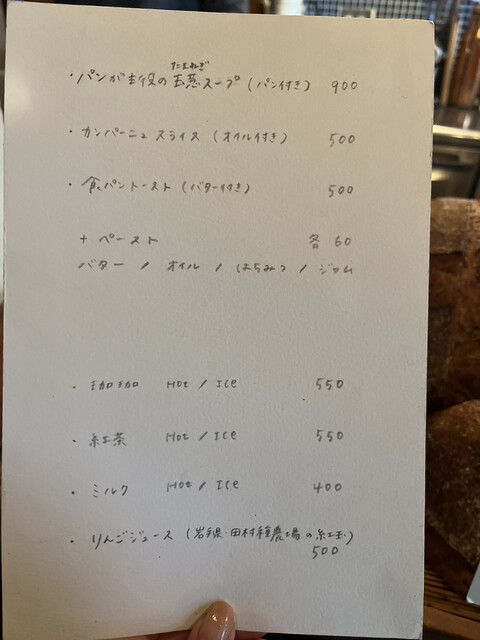 たまねぎ
・パンが主役の玉葱スープ (パン付き) 900
・カンパーニュ スライス (オイル付き) 500
・食パントースト (バター付き) 500
+ ペースト 各 60
バター / オイル / はちみつ / ジャム
・珈珈 Hot / Ice 550
・紅茶 Hot / Ice 550
・ミルク Hot / Ice 400
・りんごジュース (岩手県 田村種農場の紅玉)
500